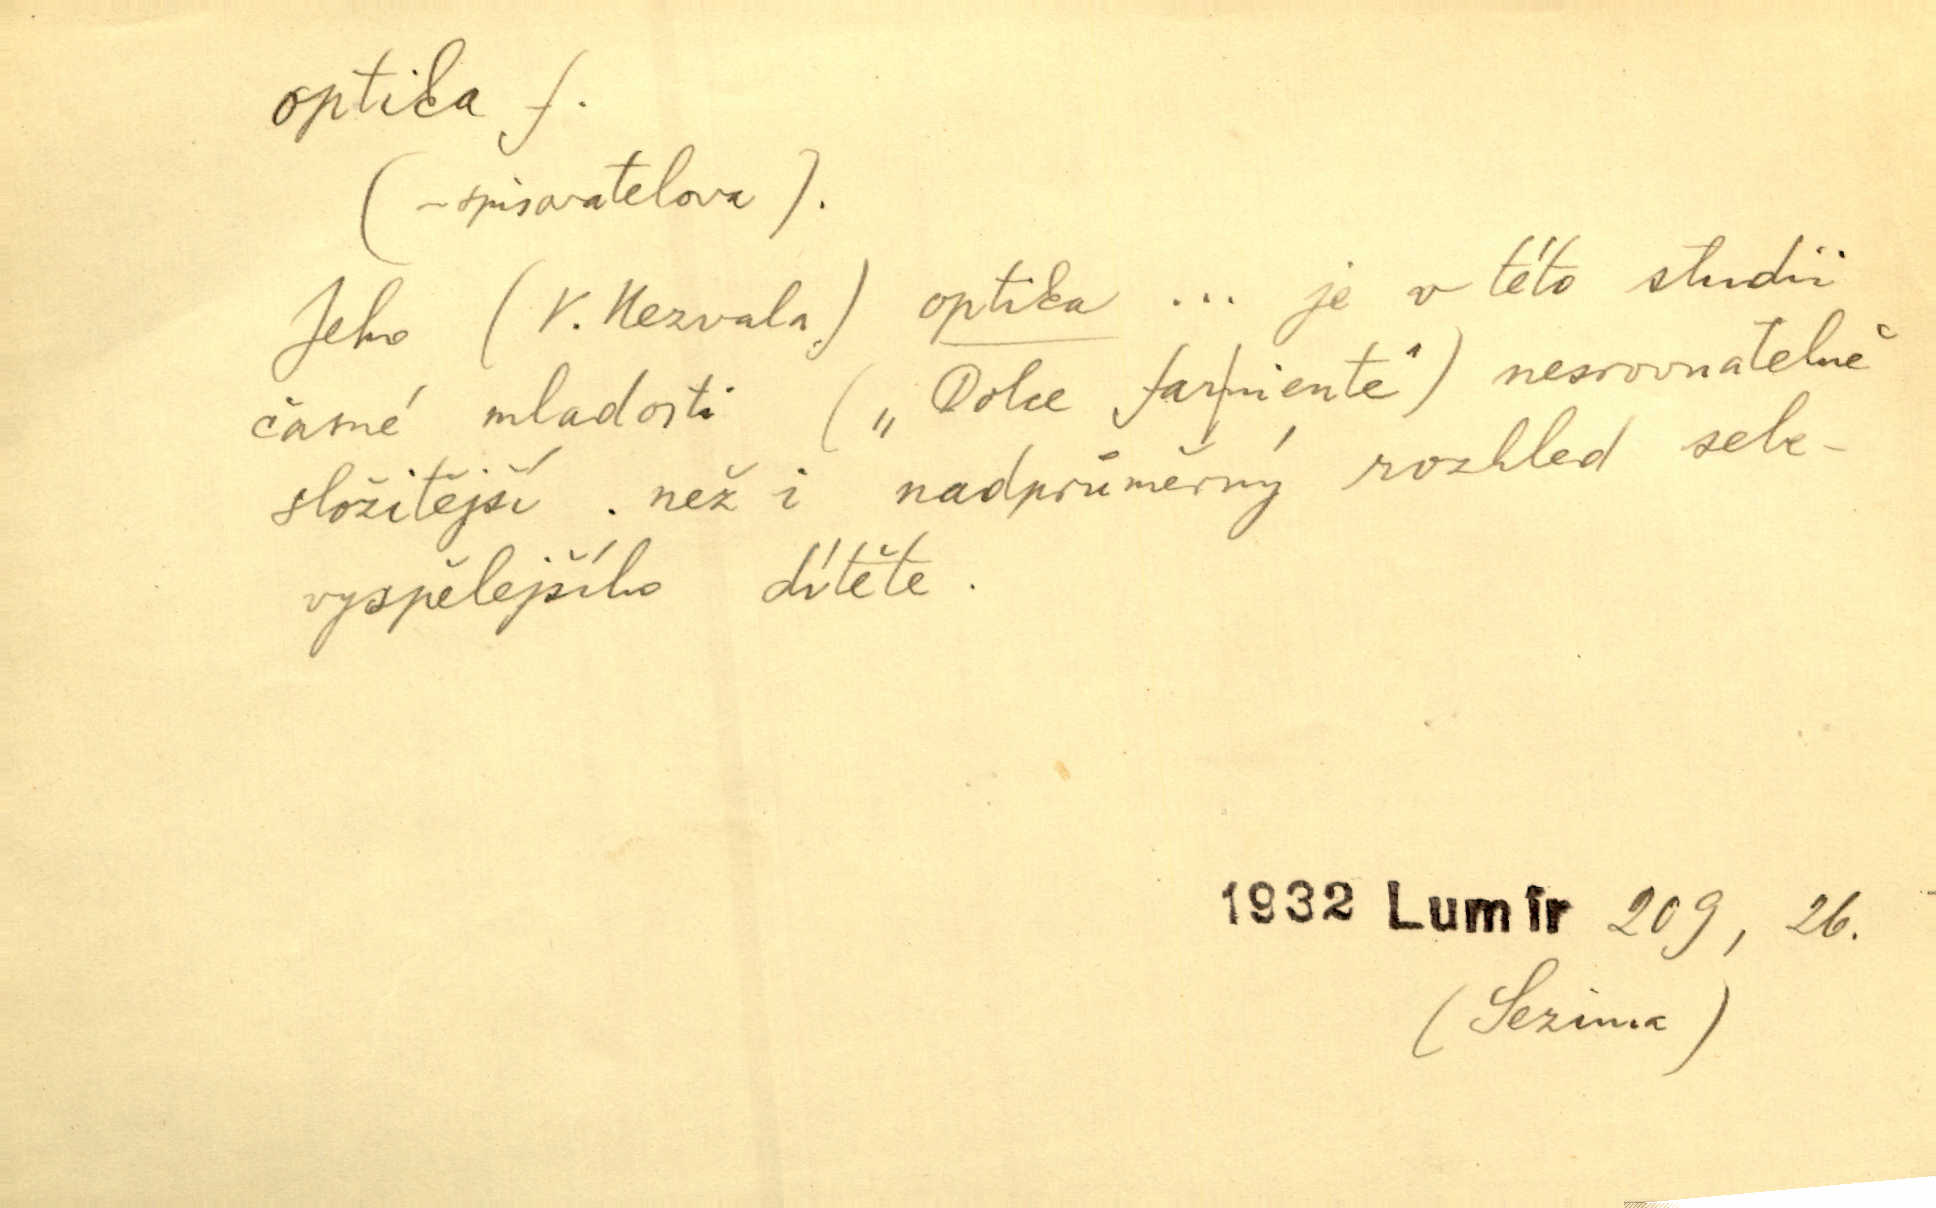 optika f.
(~ spisovatelova).
Jeho (V. Nezvala) optika ... je v této studii
časné mladosti („Dolce far|niente“) nesrovnatelně
složitější . než i nadprůměrný rozhled sebe-
vyspělejšího dítěte.
1932 Lumír 209, 26.
(Sezima)